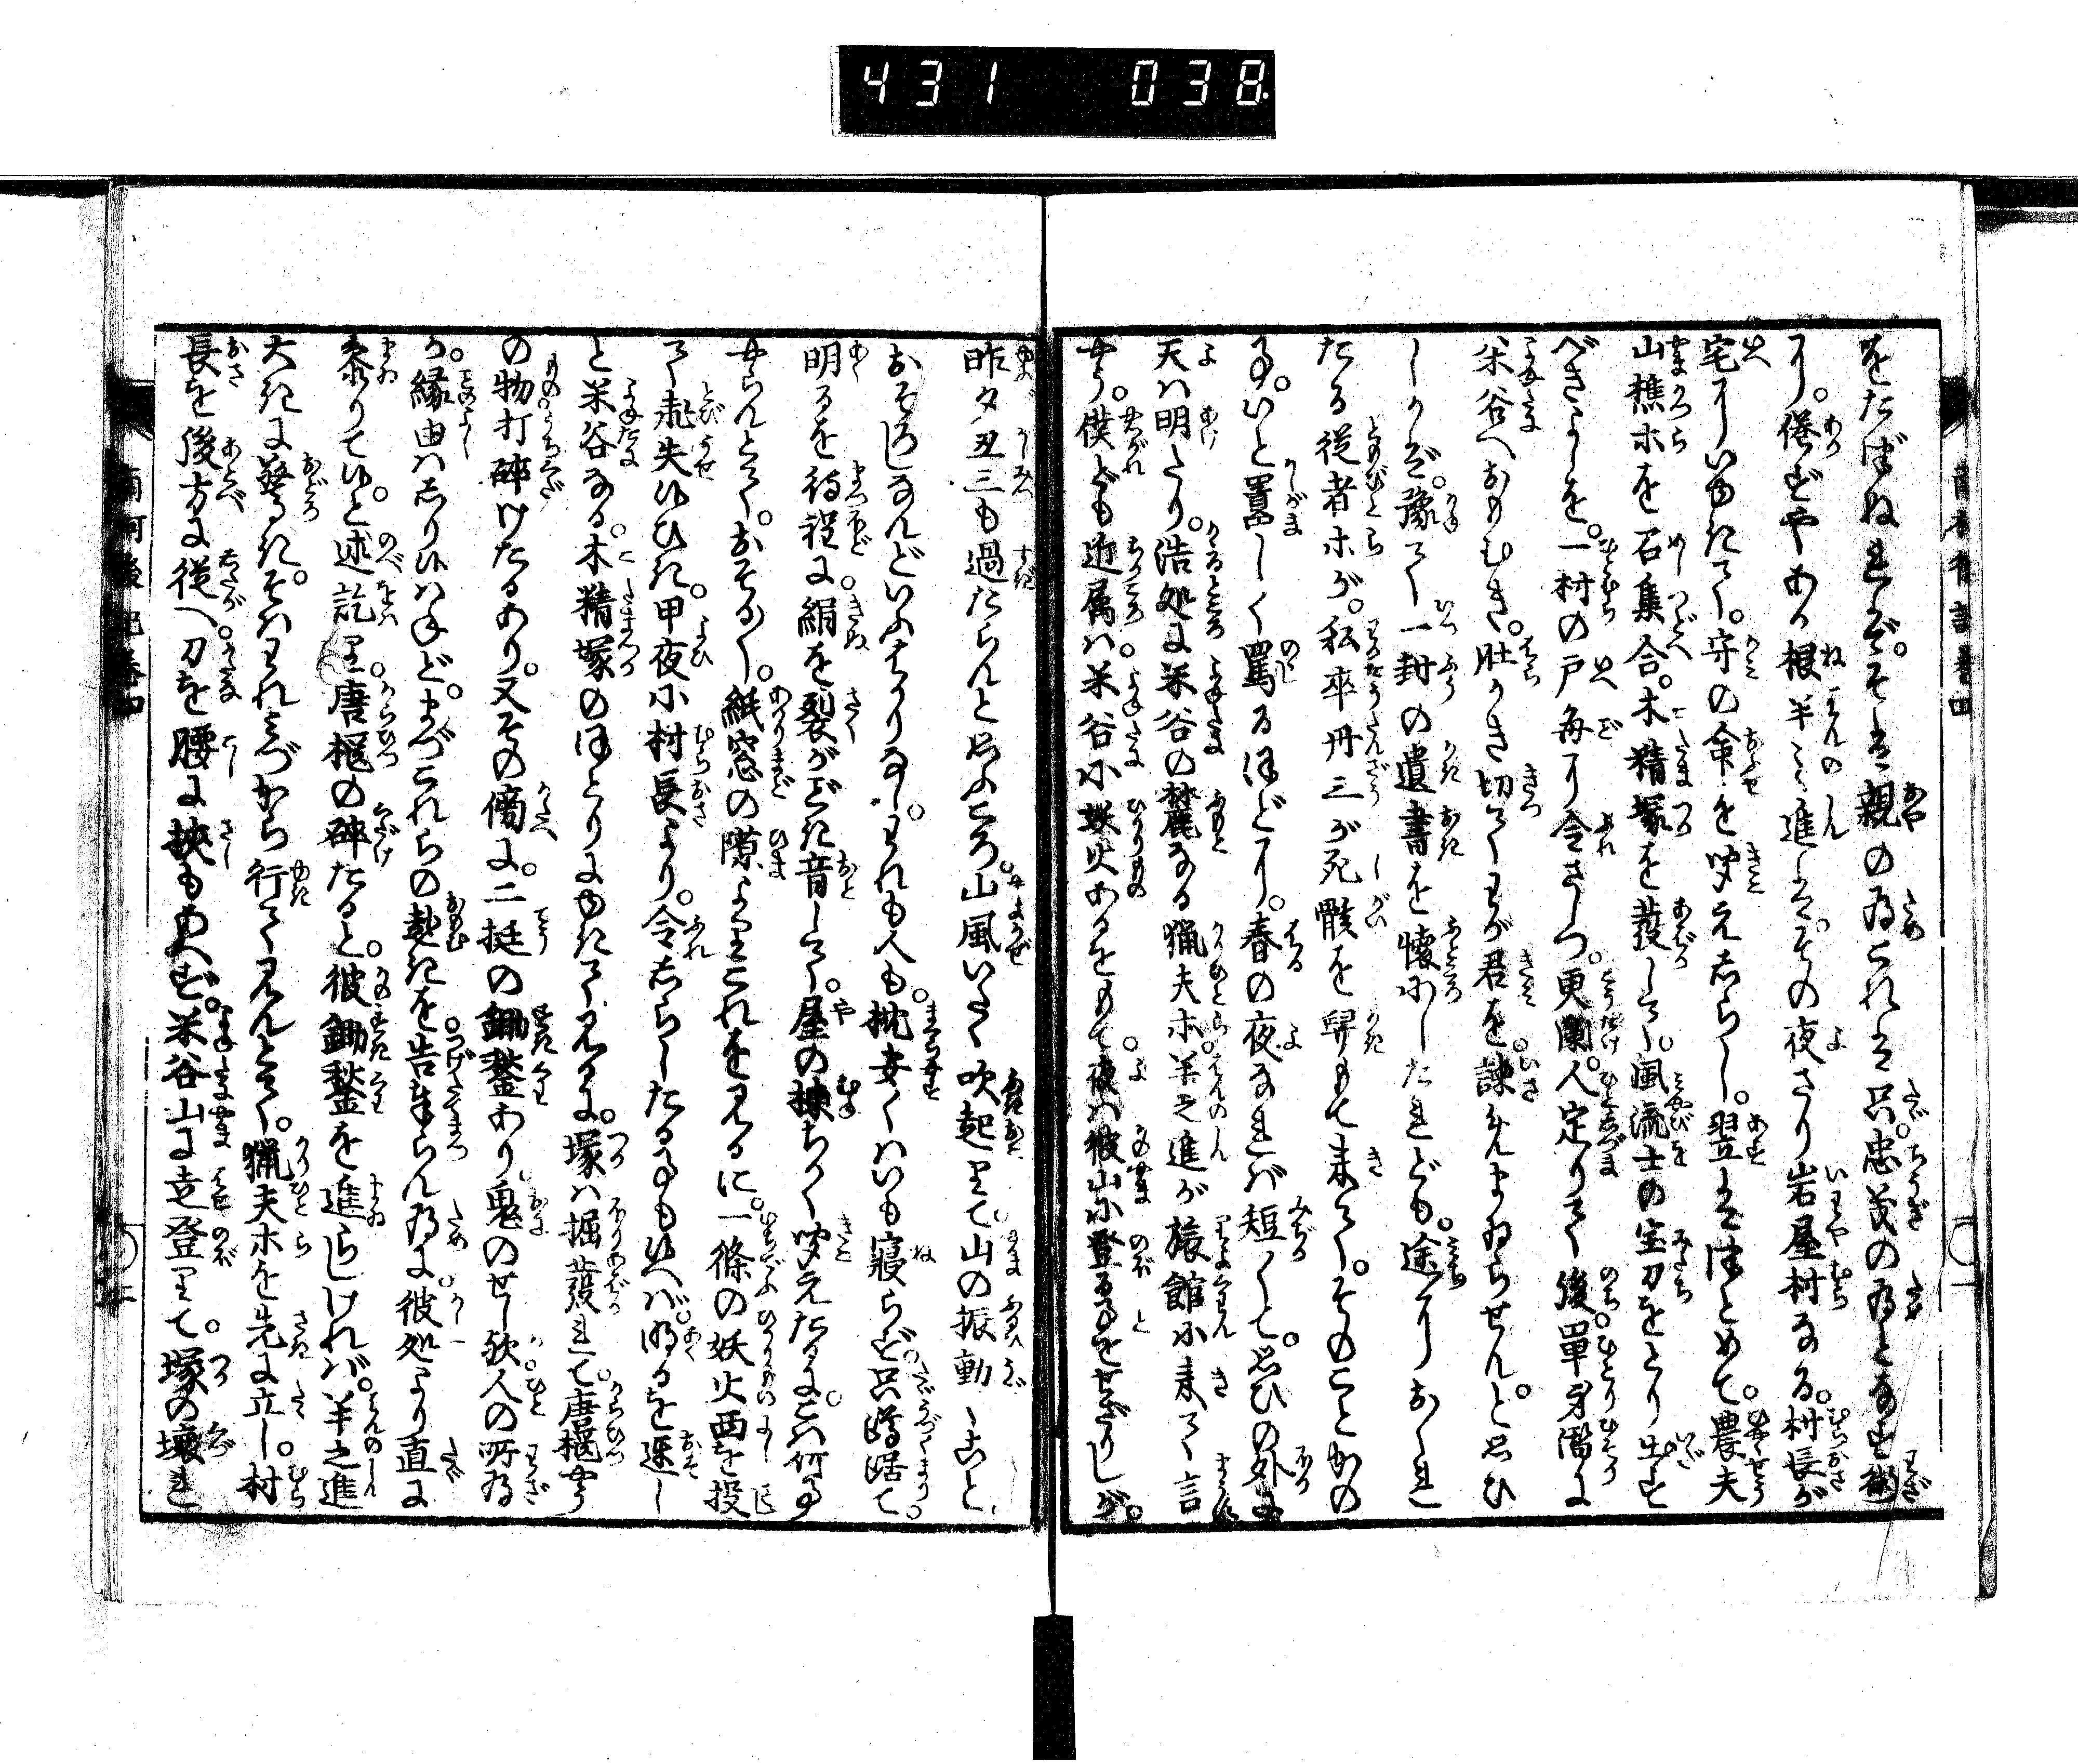 431 038
をたばぬればぞそは親の為これは只忠義の為となす術
り。倦ずやある根羊之進しは。その夜さり岩屋村なる。村長が
宅にいゆきて。守の命を聞えしらし。翌はつとめて。農夫
山樵ホを召集合。木精塚を発して。風流士の宝刀をとり出す
べきよしを。一村の戸毎に令さしつ。更闌。人定りて後。単身潜に
米谷へおもむき。肚かき切てわが君を。諫んまゐらせんと。思ひ
しかば。豫て一封の遺書を懐にしたれども。途にしおくれ
たる従者ホが。私卒丹三が死骸を舁もて来て。そのことかの
事。いと囂しく罵るほどに。春の夜なれば短くて。思ひの外に
天は明たり。浩処に米谷の麓なる猟夫ホ羊之進が旅館に来て言
やう。僕ども近属は。米谷に妖火あるをもて。夜は彼山に登る事をせざりしが。
昨夕丑三も過たらんと思ふころ。山風いたく吹起りて山の振動くこと
おそろしなんどいふはかりなし。われも人も。枕安くはいも寝らず。只蹲居て。
明るを待程に。絹を裂がごとき音して。屋の棟ちかく聞えたるに。こは何事
やらんとて。おそるおそる。紙窓の隙よりこれを見るに。一條の妖火西を投
て飛失候ひき。甲夜に村長より。令しらしたる事も候へば。明るを遅し
と米谷なる。木精塚のほとりにゆきて見るに。塚は掘発れて。唐櫃やう
の物打碎けたるあり。又その傍に。二挺の鋤鍬あり鬼のせし歟人の所為
か。縁由はしり候はねど。まづこれらの趣きを告奉らん為に。彼処より直に
参りて候。と述訖り。唐櫃の碎たると。彼鋤鍬を進らしければ。羊之進
大きに驚き。そはわれみづから行て見んとて。猟夫ホを先に立し。村
長を後方に従へ刀を腰に挟もあへず。米谷山に走登りて。塚の壊れ